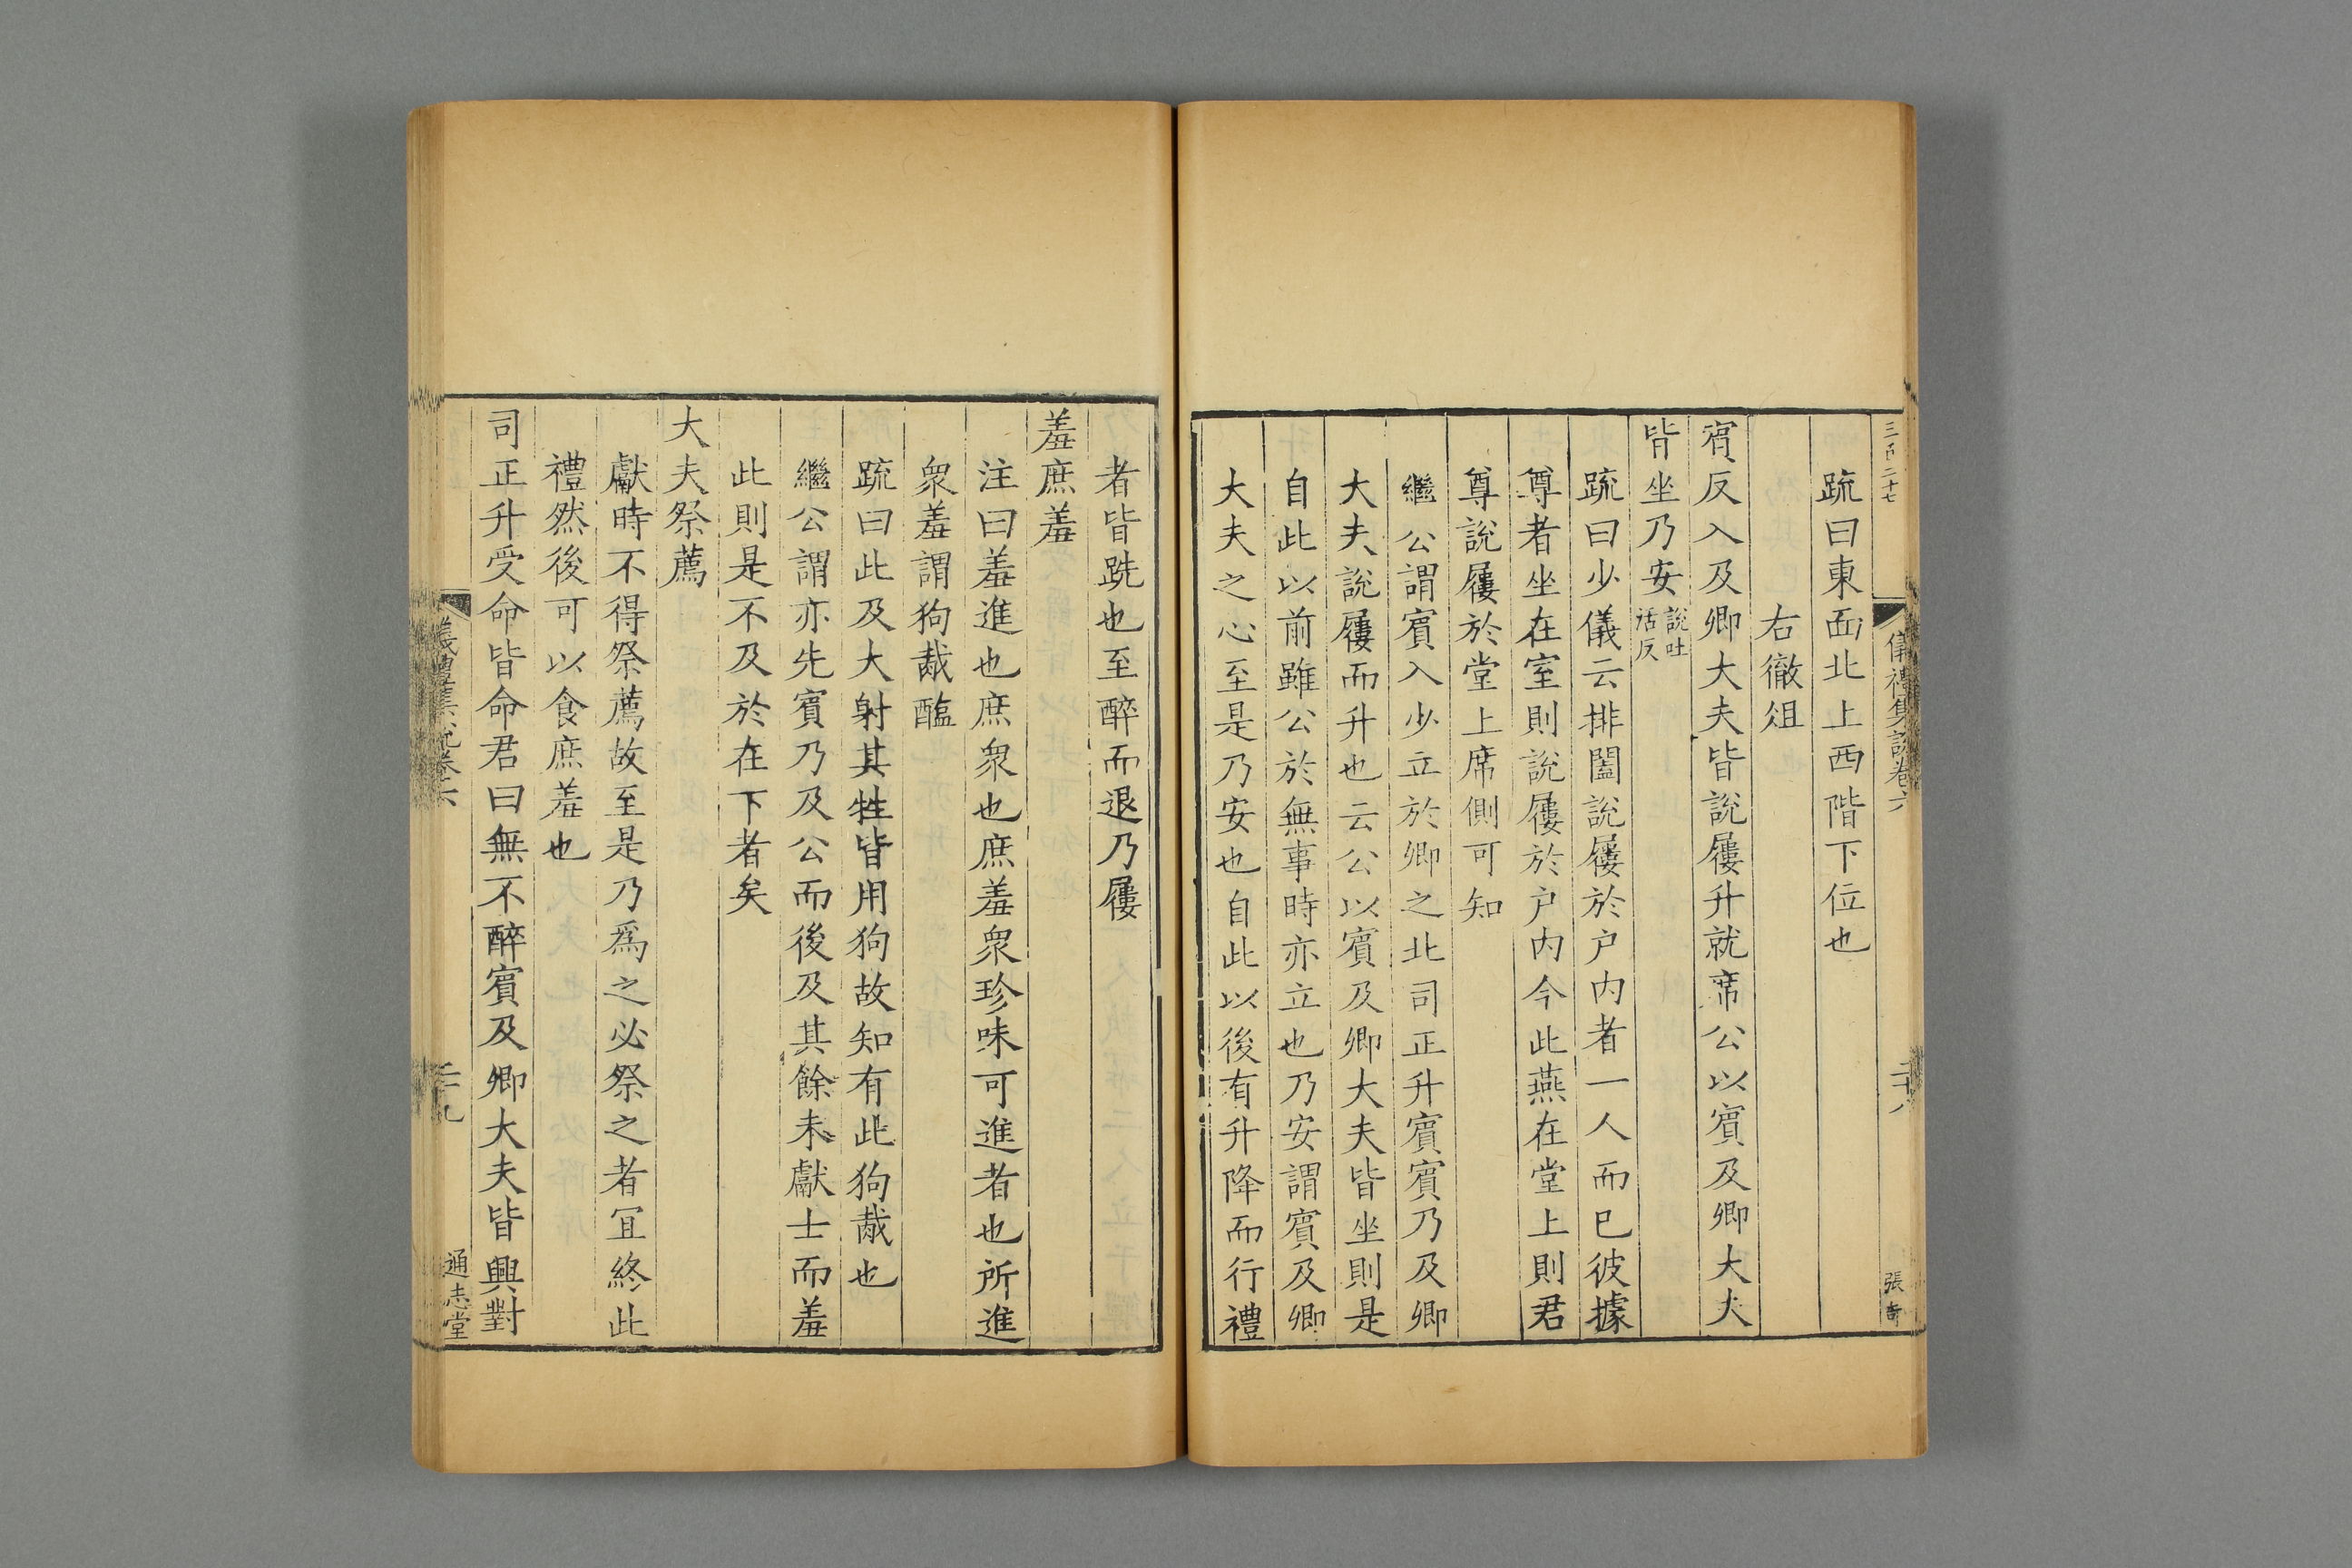 三百二十七
儀禮集說卷六
二十八
張奇
疏曰東面北上西階下位也
右徹俎
賔反入及卿大夫皆說屨升就席公以賔及卿大夫
皆坐乃安說吐活反
疏曰少儀云排闔說屨於户內者一人而已彼據
尊者坐在室則說屨於户內今此燕在堂上則君
尊說屨於堂上席側可知
繼公謂賔入少立於卿之北司正升賔賔乃及卿
大夫說屨而升也云公以賔及卿大夫皆坐則是
自此以前雖公於無事時亦立也乃安謂賔及卿
大夫之心至是乃安也自此以後有升降而行禮
者皆跣也至醉而退乃屨
羞庶羞
注曰羞進也庶衆也庶羞衆珍味可進者也所進
衆羞謂狗胾醢
疏曰此及大射其牲皆用狗故知有此狗胾也
繼公謂亦先賔乃及公而後及其餘未獻士而羞
此則是不及於在下者矣
大夫祭薦
獻時不得祭薦故至是乃爲之必祭之者宜終此
禮然後可以食庶羞也
司正升受命皆命君曰無不醉賔及卿大夫皆興對
儀禮集說卷六
二十九
通志堂